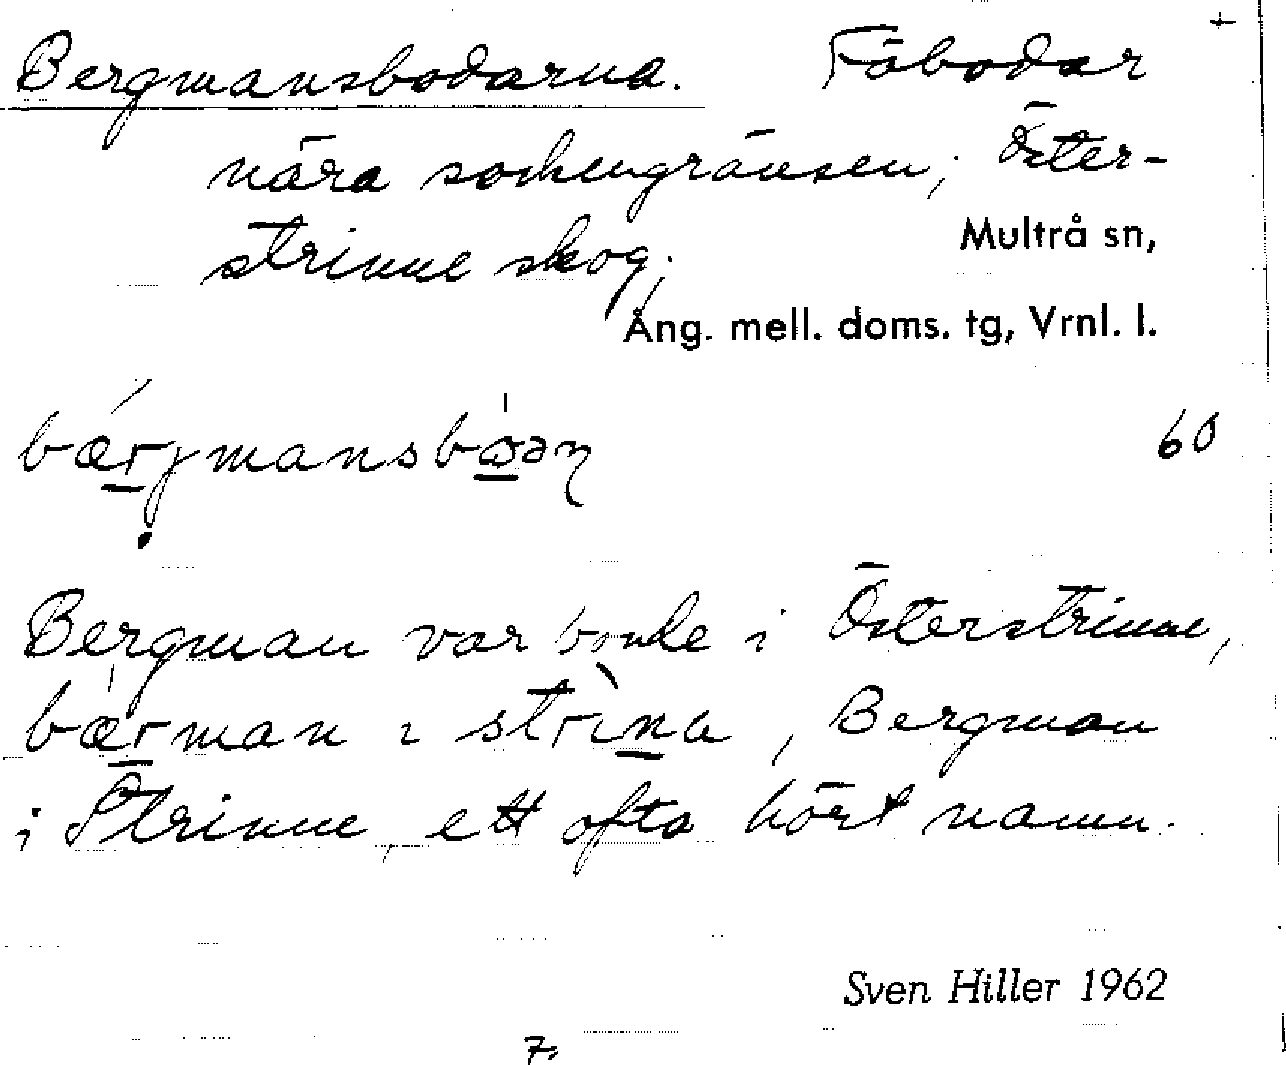 Bergmansbodarna. Fäbodar +
nära sockengränsen; Öster-
strinne skog;
Multrå sn,
Ång. mell. doms. tg, Vrnl. l.
60
Bergman var bonde i Österstrinne,
bærman ɩ strina, Bergman
i Strinne, ett ofta hört namn.
Sven Hiller 1962